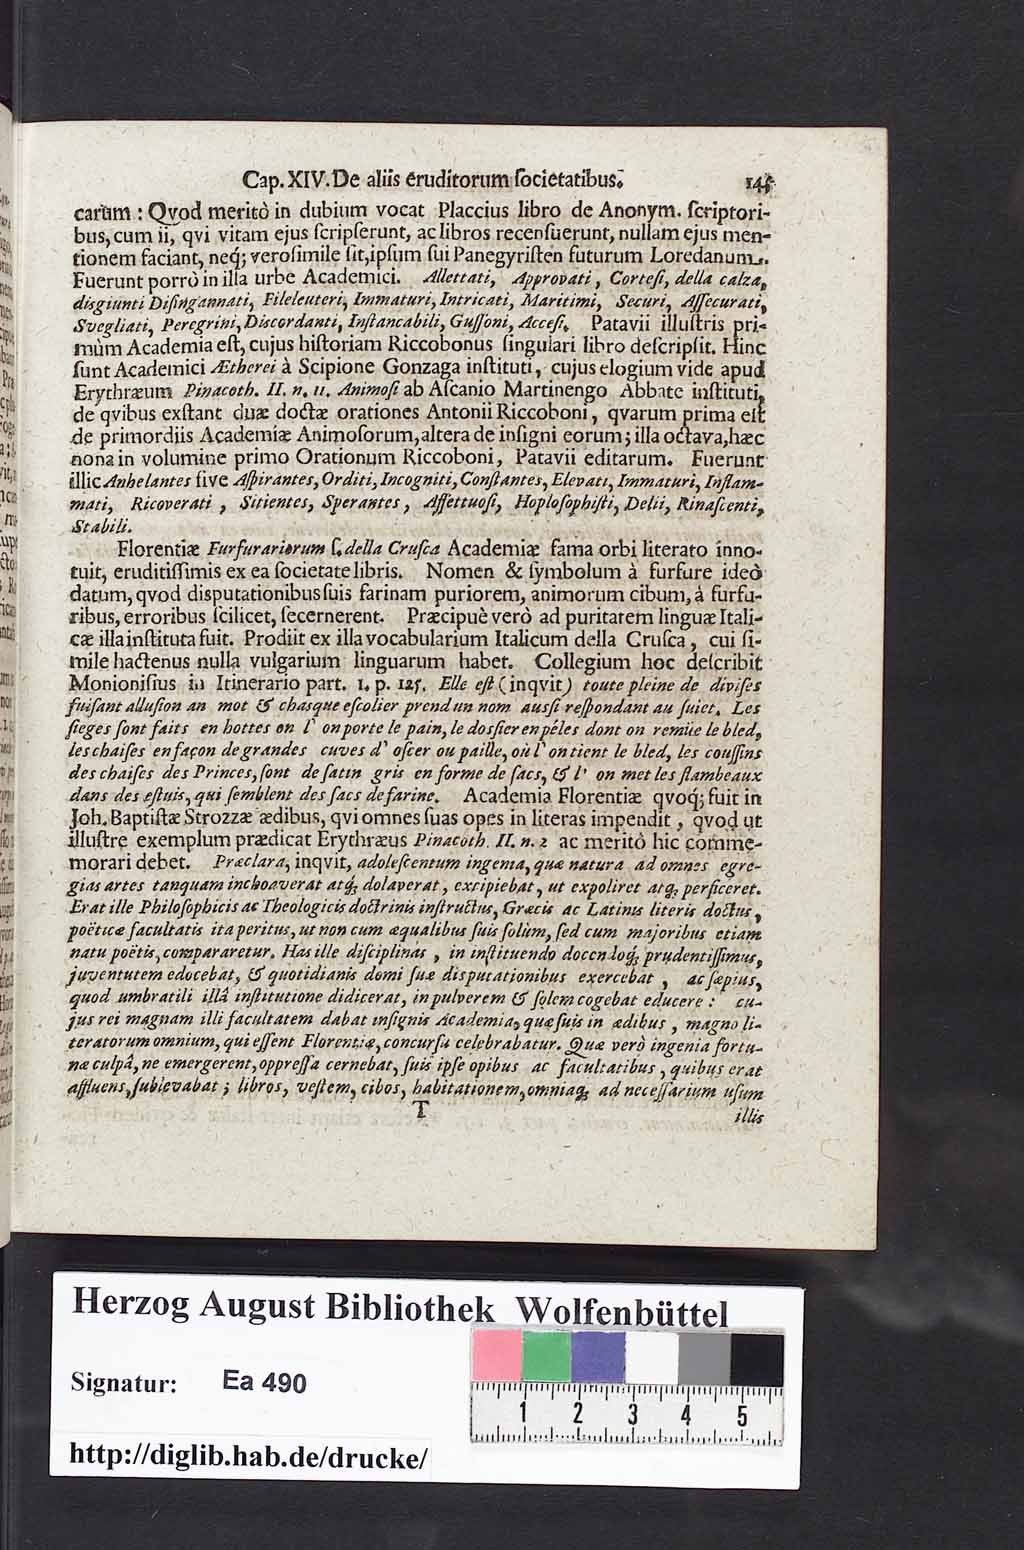 Cap. XIV. De aliis eruditorum ſocietatibus. 145
carum : Qvod meritò in dubium vocat Placcius libro de Anonym. ſcriptori-
bus, cum ii, qvi vitam ejus ſcripſerunt, ac libros recenſuerunt, nullam ejus men-
tionem faciant, neq; veroſimile ſit, ipſum ſui Panegyriſten futurum Loredanum.
Fuerunt porrò in illa urbe Academici. Allettati, Approvati, Corteſi, della calza,
disgiunti Diſingannati, Fileleuteri, Immaturi, Intricati, Maritimi, Securi, Aſſecurati,
Svegliati, Peregrini, Discordanti, Inſtancabili, Guſſoni, Acceſi. Patavii illuſtris pri-
mùm Academia eſt, cujus hiſtoriam Riccobonus ſingulari libro deſcripſit. Hinc
ſunt Academici Ætherei à Scipione Gonzaga inſtituti, cujus elogium vide apud
Erythræum Pinacoth. II. n. 11. Animoſi ab Aſcanio Martinengo Abbate inſtituti,
de qvibus exſtant duæ doctæ orationes Antonii Riccoboni, qvarum prima eſt
de primordiis Academiæ Animoſorum, altera de inſigni eorum; illa octava, hæc
nona in volumine primo Orationum Riccoboni, Patavii editarum. Fuerunt
illic Anhelantes ſive Aſpirantes, Orditi, Incogniti, Conſtantes, Elevati, Immaturi, Inflam-
mati, Ricoverati, Sitientes, Sperantes, Affettuoſi, Hoploſophiſti, Delii, Rinaſcenti,
Stabili.
Florentiæ Furfurariorum ſ. della Cruſca Academiæ fama orbi literato inno-
tuit, eruditiſſimis ex ea ſocietate libris. Nomen & ſymbolum à furfure ideò
datum, qvod disputationibus ſuis farinam puriorem, animorum cibum, à furfu-
ribus, erroribus ſcilicet, ſecernerent. Præcipuè verò ad puritatem linguæ Itali-
cæ illa inſtituta fuit. Prodiit ex illa vocabularium Italicum della Cruſca, cui ſi-
mile hactenus nulla vulgarium linguarum habet. Collegium hoc deſcribit
Monioniſius in Itinerario part. 1. p. 125. Elle eſt (inqvit) toute pleine de diviſes
faiſant alluſion an mot & chasque eſcolier prend un nom auſſi reſpondant au ſuiet. Les
ſieges ſont faits en hottes on l' on porte le pain, le dosſier en péles dont on remüe le bled,
les chaiſes en façon de grandes cuves d' oſcer ou paille, où l' on tient le bled, les couſſins
des chaiſes des Princes, ſont de ſatin gris en forme de ſacs, & l' on met les flambeaux
dans des eſtuis, qui ſemblent des ſacs de farine. Academia Florentiæ qvoq; fuit in
Joh. Baptiſtæ Strozzæ ædibus, qvi omnes ſuas opes in literas impendit, qvod ut
illuſtre exemplum prædicat Erythræus Pinacoth. II. n. 2 ac meritò hic comme-
morari debet. Præclara, inqvit, adoleſcentum ingenia, quæ natura ad omnes egre-
gias artes tanquam inchoaverat atq; dolaverat, excipiebat, ut expoliret atq; perficeret.
Erat ille Philoſophicis ac Theologicis doctrinis inſtructus, Græcis ac Latinis literis doctus,
poëticæ facultatis ita peritus, ut non cum æqualibus ſuis ſolùm, ſed cum majoribus etiam
natu poëtis, compararetur. Has ille diſciplinas, in inſtituendo docendoq; prudentiſſimus,
juventutem edocebat, & quotidianis domi ſuæ disputationibus exercebat, ac ſæpius,
quod umbratili illâ inſtitutione didicerat, in pulverem & ſolem cogebat educere : cu-
jus rei magnam illi facultatem dabat inſignis Academia, quæ ſuis in ædibus, magno li-
teratorum omnium, qui eſſent Florentiæ, concurſu celebrabatur. Quæ verò ingenia fortu-
næ culpâ, ne emergerent, oppreſſa cernebat, ſuis ipſe opibus ac facultatibus, quibus erat
affluens, ſublevabat; libros, veſtem, cibos, habitationem, omniaq; ad neceſſarium uſum
T illis
Herzog August Bibliothek Wolfenbüttel
Signatur: Ea 490
1 2 3 4 5
http://diglib.hab.de/drucke/